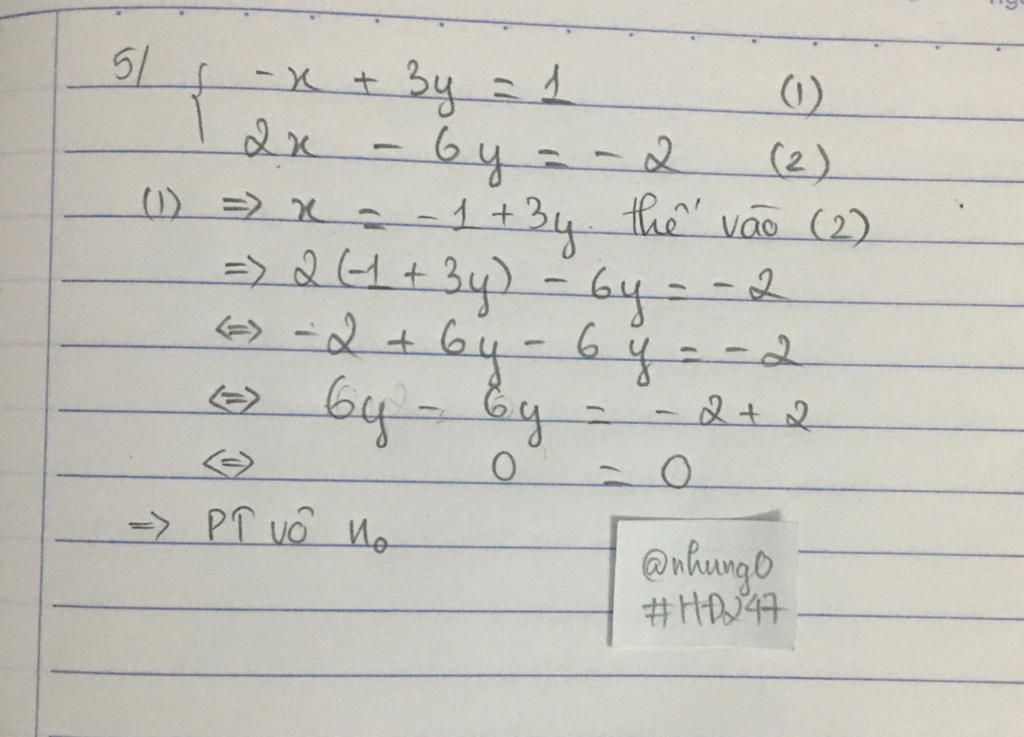 5/ { -x + 3y = 1 (1)
2x - 6y = -2 (2)
(1) => x = -1 + 3y. thế vào (2)
=> 2(-1 + 3y) - 6y = -2
<=> -2 + 6y - 6y = -2
<=> 6y - 6y = -2 + 2
<=> 0 = 0
=> PT vô n₀
@nhung0
#HD247